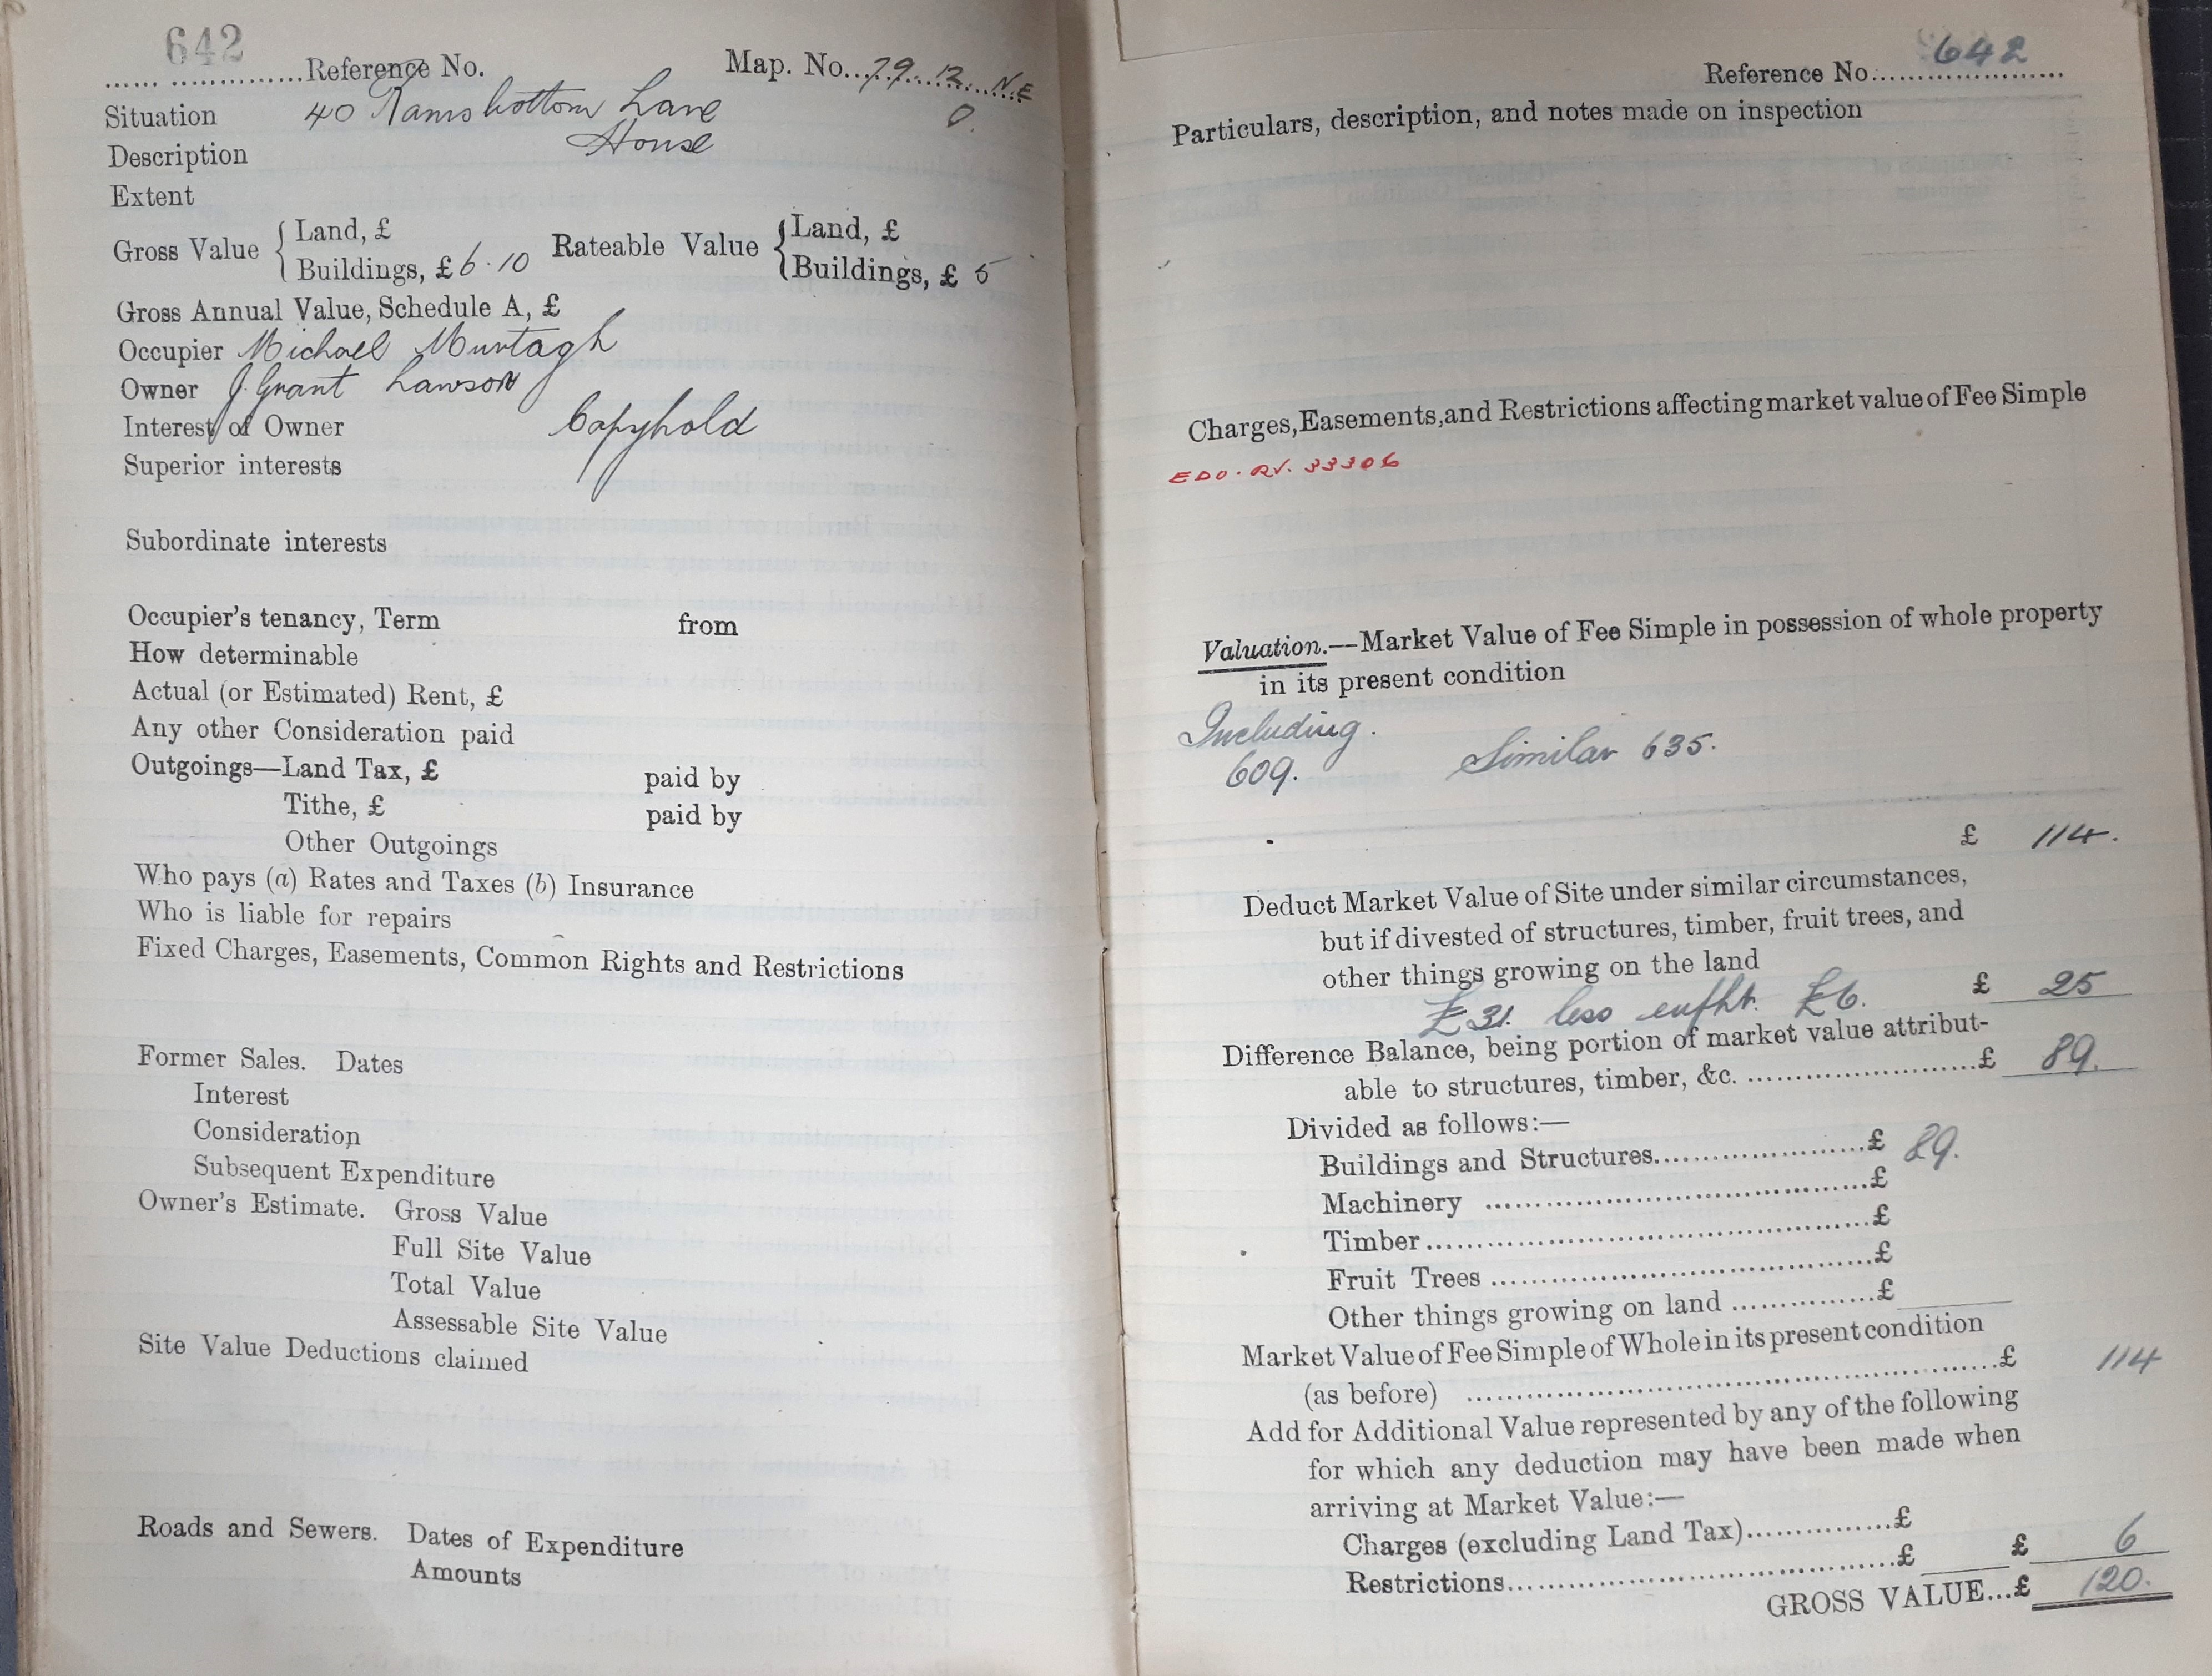 642
...... ...............Reference No.
Map. No...79.12.N.E
Situation 40 Ramsbottom Lane
0.
Description House
Extent
Gross Value { Land, £
Buildings, £ 6.10
Rateable Value { Land, £
Buildings, £ 5
Gross Annual Value, Schedule A, £
Occupier Michael Murtagh
Owner J. Grant Lawson
Interest of Owner Copyhold
Superior interests
Subordinate interests
Occupier's tenancy, Term from
How determinable
Actual (or Estimated) Rent, £
Any other Consideration paid
Outgoings—Land Tax, £ paid by
Tithe, £ paid by
Other Outgoings
Who pays (a) Rates and Taxes (b) Insurance
Who is liable for repairs
Fixed Charges, Easements, Common Rights and Restrictions
Former Sales. Dates
Interest
Consideration
Subsequent Expenditure
Owner's Estimate. Gross Value
Full Site Value
Total Value
Assessable Site Value
Site Value Deductions claimed
Roads and Sewers. Dates of Expenditure
Amounts
Reference No. 642
Particulars, description, and notes made on inspection
Charges, Easements, and Restrictions affecting market value of Fee Simple
EDO. RV. 33306
Valuation.—Market Value of Fee Simple in possession of whole property
in its present condition
Including.
609. Similar 635.
£ 114.
Deduct Market Value of Site under similar circumstances,
but if divested of structures, timber, fruit trees, and
other things growing on the land
£31. less enfht. £6. £ 25
Difference Balance, being portion of market value attribut-
able to structures, timber, &c. ........................£ 89.
Divided as follows:—
Buildings and Structures......................£ 89.
Machinery ........................................£
Timber...............................................£
Fruit Trees .......................................£
Other things growing on land ...............£
Market Value of Fee Simple of Whole in its present condition
(as before) .......................................................£ 114
Add for Additional Value represented by any of the following
for which any deduction may have been made when
arriving at Market Value:—
Charges (excluding Land Tax)...............£
Restrictions.........................................£ £ 6
GROSS VALUE...£ 120.